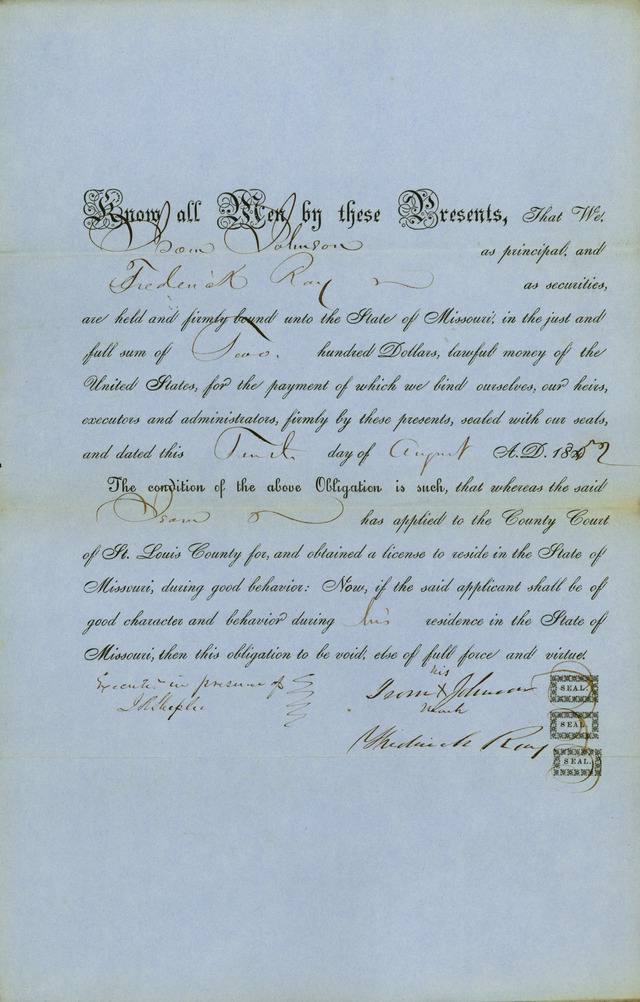 Know all Men by these Presents, That We.
Isom Johnson as principal, and
Frederick Roy as securities,
are held and firmly bound unto the State of Missouri, in the just and
full sum of Two. hundred Dollars, lawful money of the
United States, for the payment of which we bind ourselves, our heirs,
executors and administrators, firmly by these presents, sealed with our seals,
and dated this Tenth day of August A.D. 1852
The condition of the above Obligation is such, that whereas the said
Isom has applied to the County Court
of St. Louis County for, and obtained a license to reside in the State of
Missouri, during good behavior: Now, if the said applicant shall be of
good character and behavior during his residence in the State of
Missouri, then this obligation to be void; else of full force and virtue.
Executed in presence of
his
Isom X Johnson SEAL.
mark
SEAL.
Frederick Roy
SEAL.